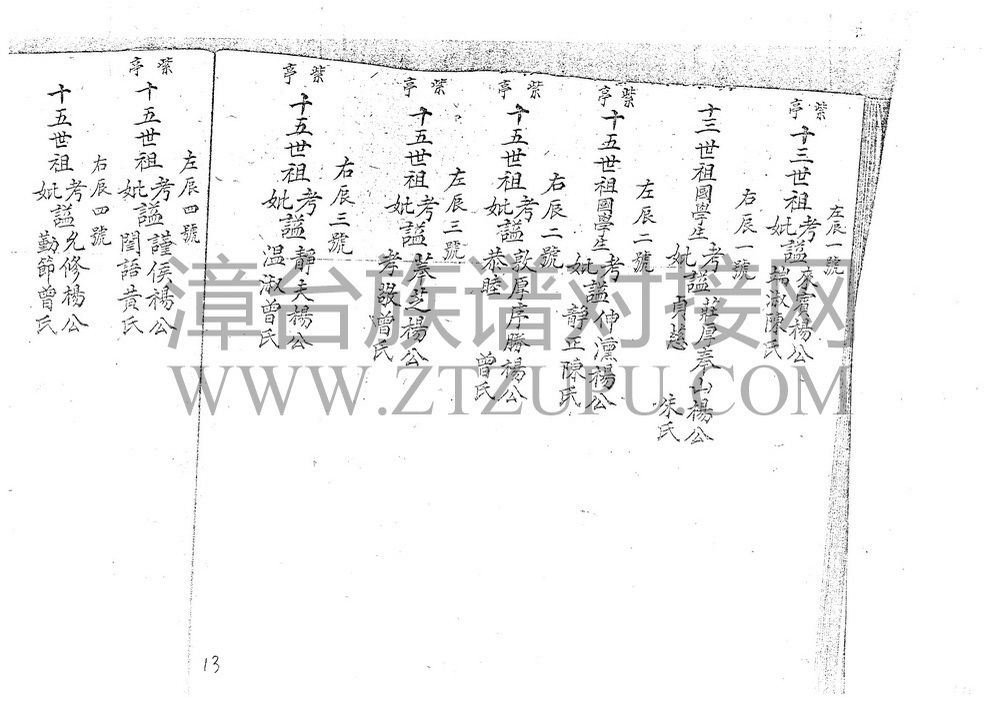 左辰一號
紫亭 十三世祖考妣諡來賓楊公 端淑陳氏
右辰一號
十三世祖國學生考妣諡莊厚奉山楊公 貞慈 朱氏
左辰二號
紫亭 十五世祖國學生考妣諡伸凜楊公 靜正陳氏
右辰二號
紫亭 十五世祖考妣諡敦厚序勝楊公 恭睦 曾氏
左辰三號
紫亭 十五世祖考妣諡 楊公 孝 曾氏
右辰三號
紫亭 十五世祖考妣諡靜夫楊公 温淑曾氏
左辰四號
紫亭 十五世祖考妣諡謹侯楊公 閨語黄氏
右辰四號
十五世祖考妣諡允修楊公 勤節曾氏
13
漳台族谱对接网
WWW.ZTZUPU.COM